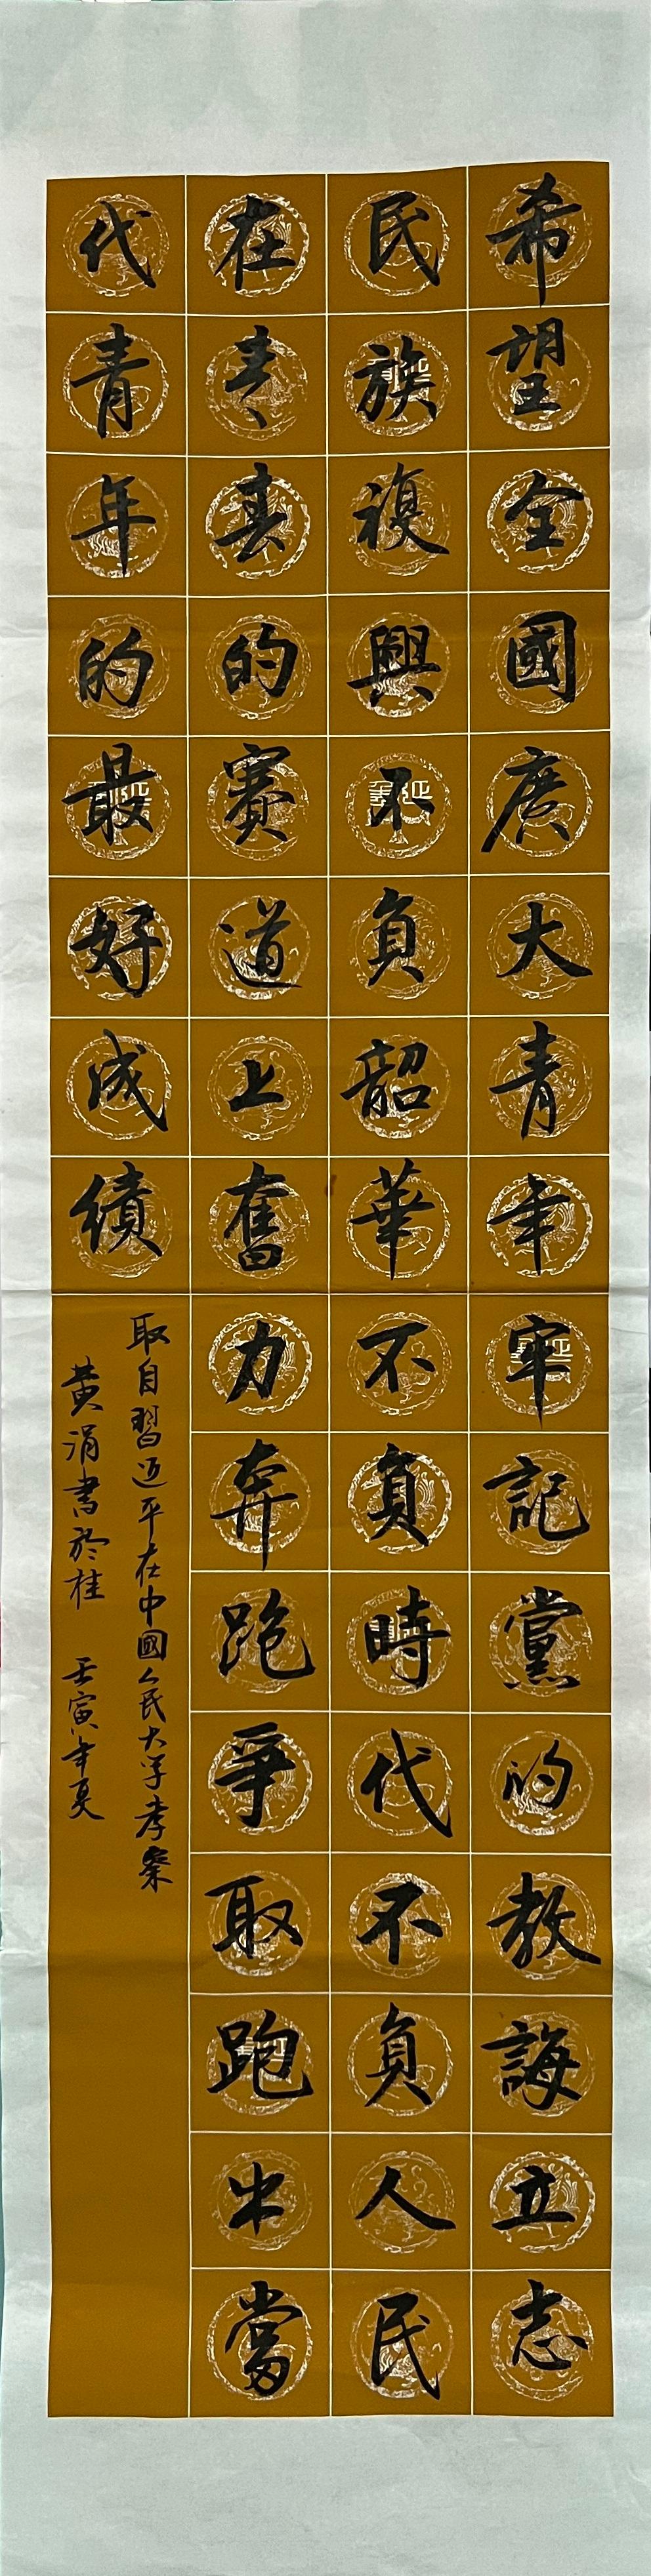 希望全國廣大青年牢記黨的教誨立志
民族複興不負韶華不負時代不負人民
在青春的賽道上奮力奔跑爭取跑出當
代青年的最好成績
取自習近平在中國人民大学考察
黄涓書於桂 壬寅年夏